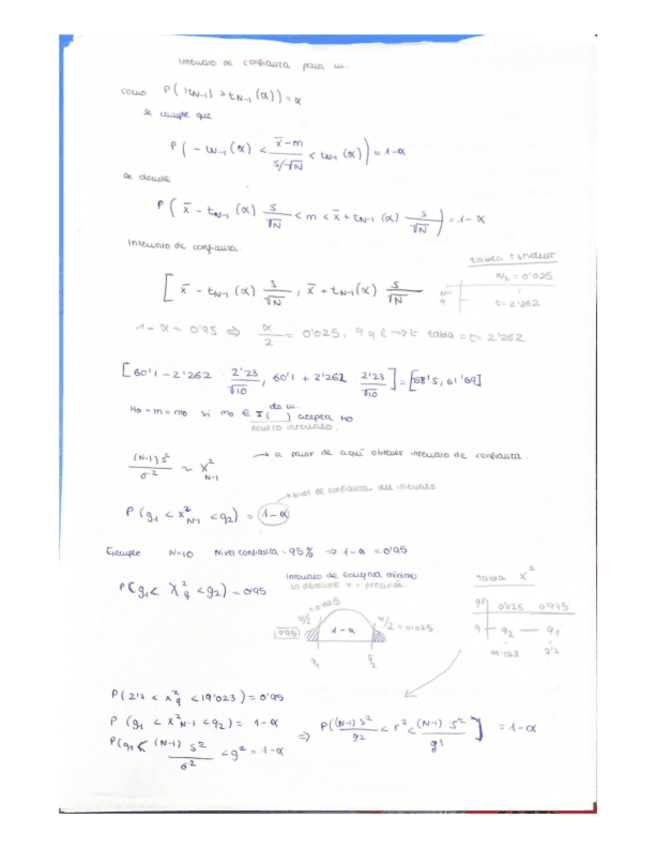 Intervalo de confianza para m.
como P( |t_{N-1}| > t_{N-1} (α)) = α
se cumple que
P( - t_{N-1} (α) < \frac{x̄-m}{s/√N} < t_{N-1} (α) ) = 1-α
de donde
P( x̄ - t_{N-1} (α) \frac{s}{√N} < m < x̄ + t_{N-1} (α) \frac{s}{√N} ) = 1-α
Intervalo de confianza
tabla t student
[ x̄ - t_{N-1} (α) \frac{s}{√N} , x̄ + t_{N-1}(α) \frac{s}{√N}
α/2 = 0'025
N-1
9
t = 2'262
1-α = 0'95 ⇒ \frac{α}{2} = 0'025, 9 g l → t tabla = t = 2'262
[60'1 - 2'262 \frac{2'23}{√10}, 60'1 + 2'262 \frac{2'23}{√10}] = [58'5, 61'69]
H0 = m = m0 si m0 ∈ I( de m ) acepta H0
dentro intervalo.
\frac{(N-1) s^2}{σ^2} ~ X^2_{N-1} → a partir de aquí obtener intervalo de confianza.
→ nivel de confianza del intervalo
P (g1 < X^2_{N-1} < g2) = 1-α
Ejemplo N=10 Nivel confianza = 95% ⇒ 1-α = 0'95
P(g1 < X^2_9 < g2) = 0'95
Intervalo de longitud mínimo
tabla X^2
α/2 = 0'025
1-α
α/2 = 0'025
g1
g2
0'025 0'975
9 g2 — g1
19'023 2'7
P(2'7 < X^2_9 < 19'023) = 0'95
P (g1 < X^2_{N-1} < g2) = 1-α
⇒ P( \frac{(N-1) s^2}{g2} < r^2 < \frac{(N-1) s^2}{g1} ] = 1-α
P(g1 < \frac{(N-1) s^2}{σ^2} < g^2 = 1-α